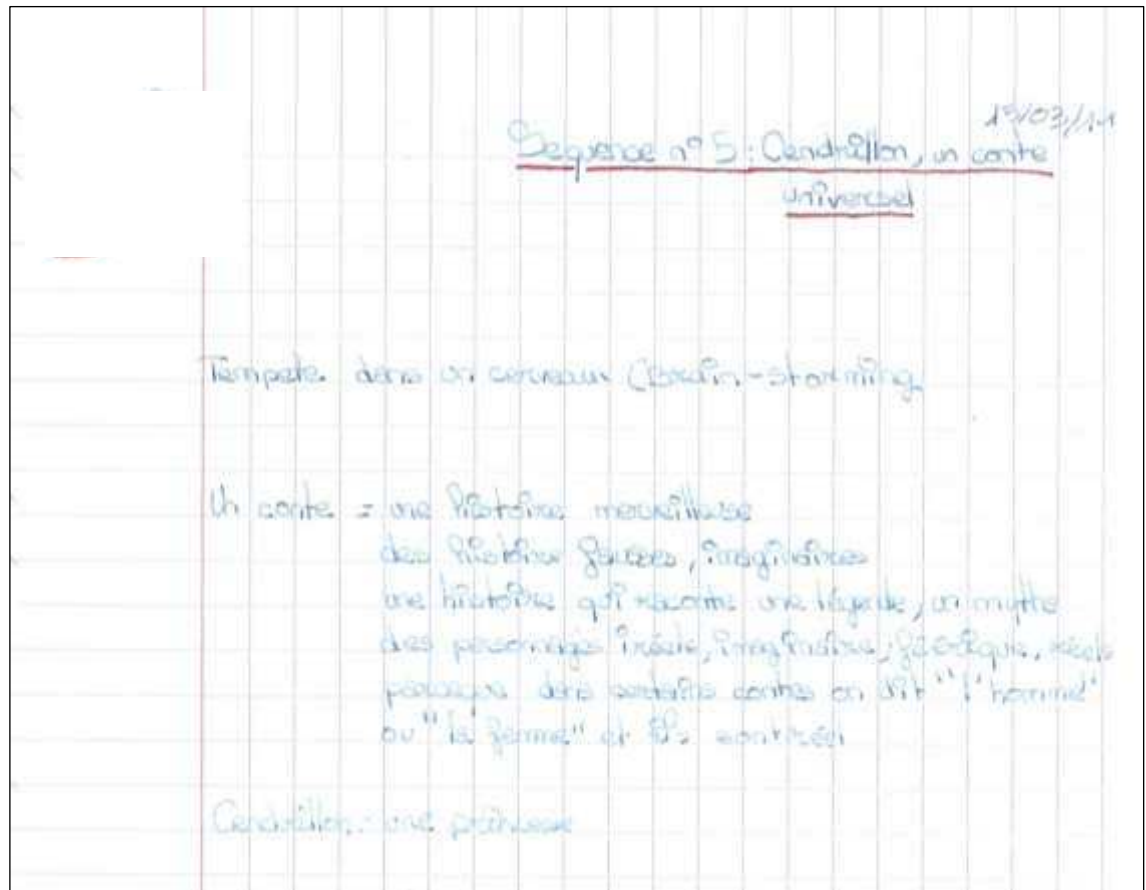 15/03/11
Sequence n° 5 : Cendrillon, un conte
universel
Tempete dans un cerveaux (Brain-storming
Un conte = une histoire merveilleuse
des histoire fausses, imaginaires
une histoire qui raconte une légende, un mythe
des personnages iréels, imaginaire, féérique, réels
parceque dans certains contes on dit "l'homme"
ou "la femme" et ils sont réel
Cendrillon : une princesse